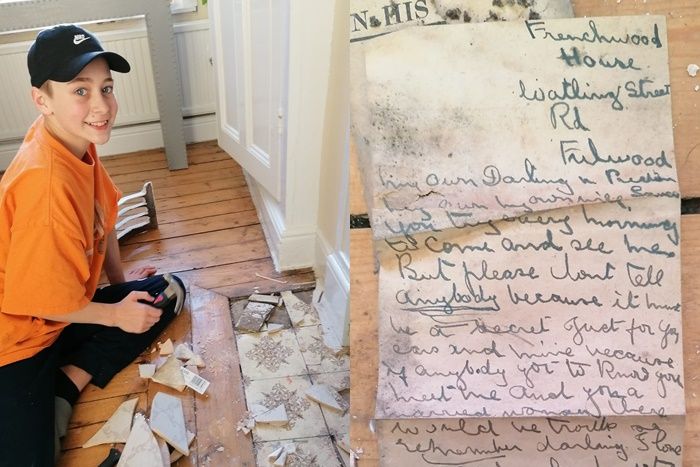 N HIS
Frenchwood
House
Watling Street
Rd
Fulwood
My own Darling Preston
my own
you try every morning
to come and see me.
But please dont tell
anybody because it must
be a secret Just for your
ears and mine because
if anybody got to know you
meet me and you a
married woman there
would be trouble so
remember darling. I love